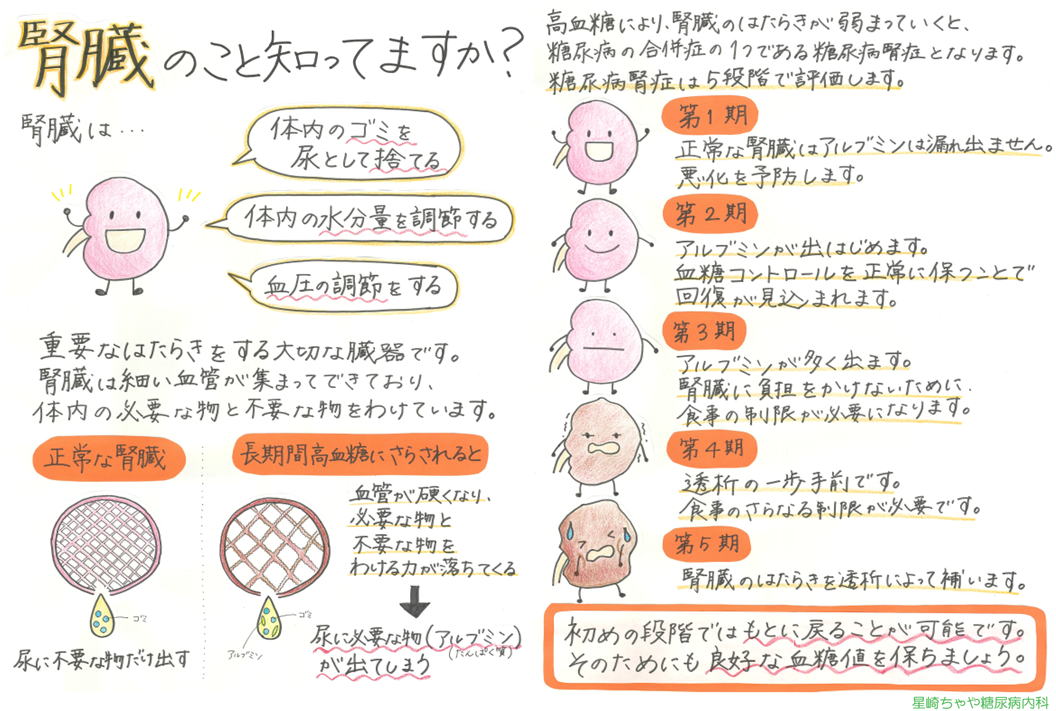 腎臓のこと知ってますか?
腎臓は…
体内のゴミを
尿として捨てる
体内の水分量を調節する
血圧の調節をする
重要なはたらきをする大切な臓器です。
腎臓は細い血管が集まってできており、
体内の必要な物と不要な物をわけています。
正常な腎臓
ゴミ
尿に不要な物だけ出す
長期間高血糖にさらされると
血管が硬くなり、
必要な物と
不要な物を
わける力が落ちてくる
ゴミ
アルブミン
尿に必要な物(アルブミン)
(たんぱく質)
が出てしまう
高血糖により、腎臓のはたらきが弱まっていくと、
糖尿病の合併症の1つである糖尿病腎症となります。
糖尿病腎症は5段階で評価します。
第1期
正常な腎臓はアルブミンは漏れ出ません。
悪化を予防します。
第2期
アルブミンが出はじめます。
血糖コントロールを正常に保つことで
回復が見込まれます。
第3期
アルブミンが多く出ます。
腎臓に負担をかけないために、
食事の制限が必要になります。
第4期
透析の一歩手前です。
食事のさらなる制限が必要です。
第5期
腎臓のはたらきを透析によって補います。
初めの段階ではもとに戻ることが可能です。
そのためにも良好な血糖値を保ちましょう。
星崎ちゃや糖尿病内科